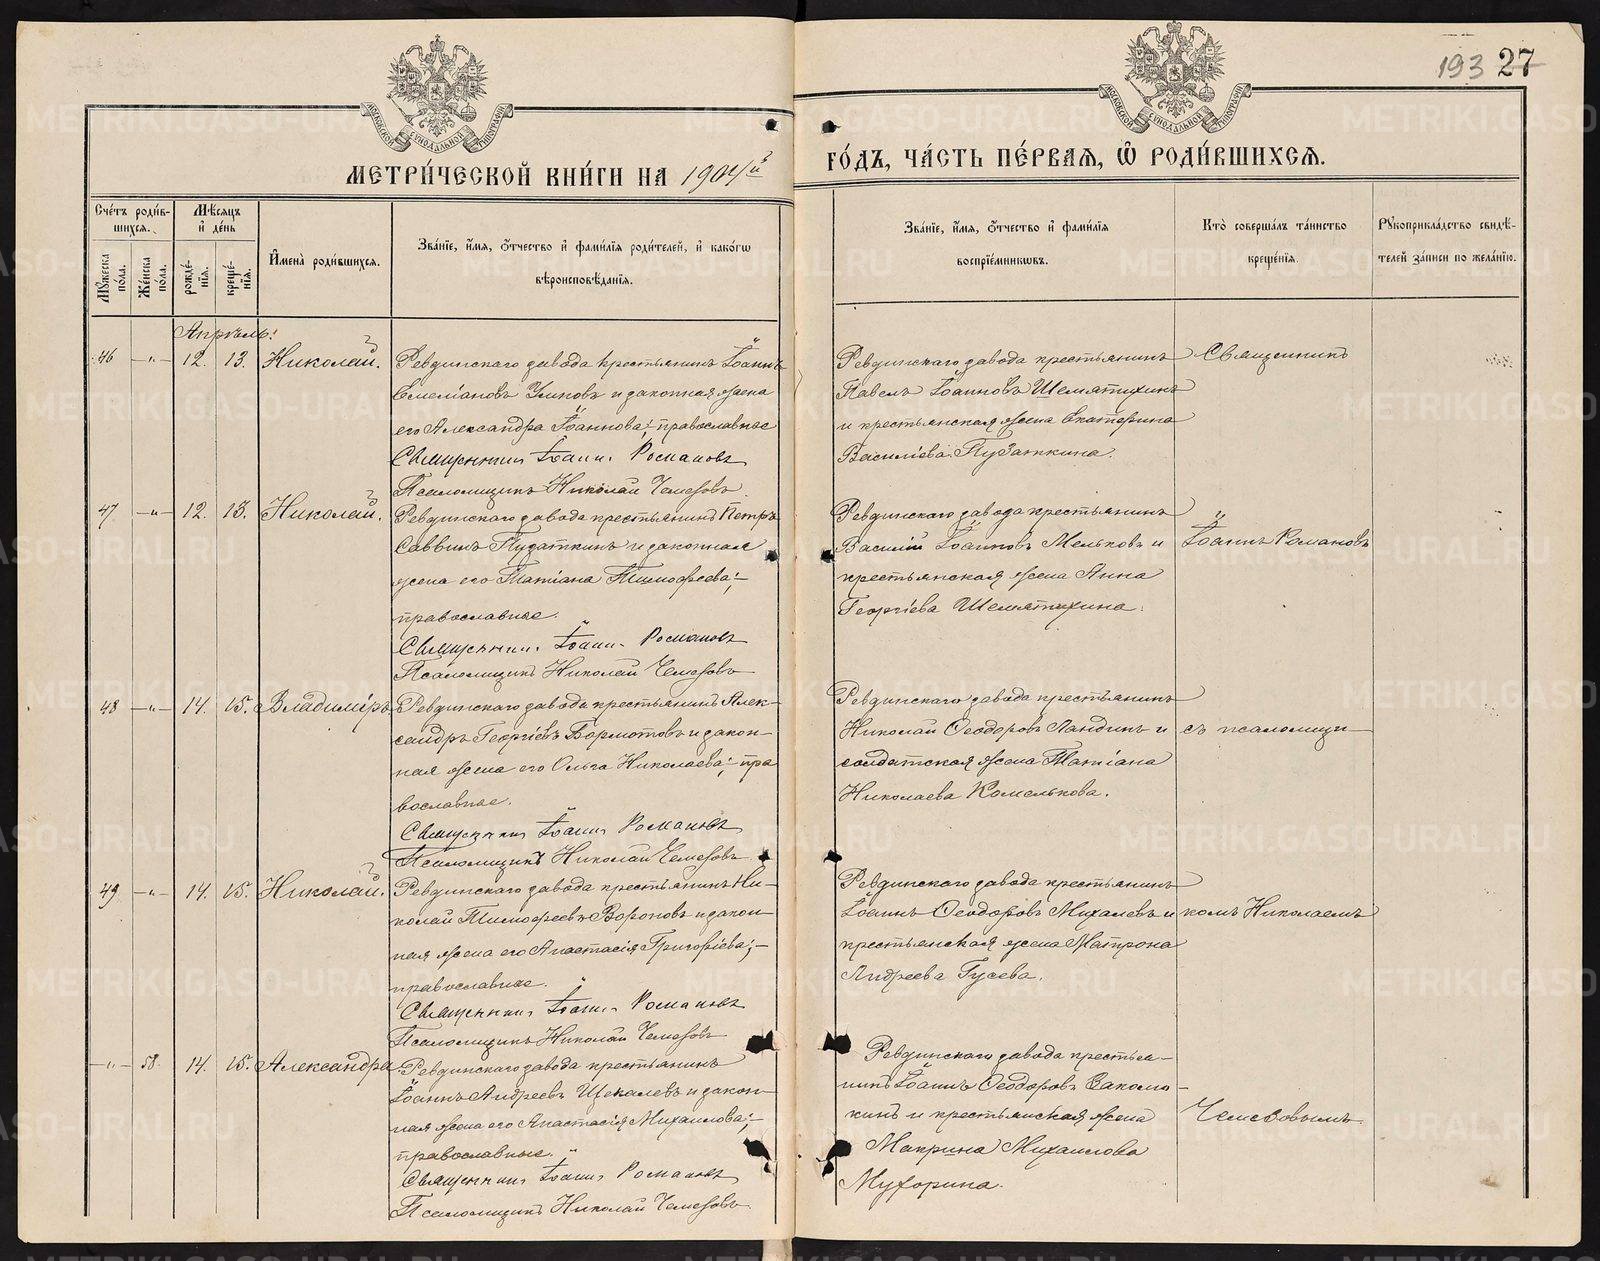 193 27
МОСКОВСКОЙ СѴНОДАЛЬНОЙ ТИПОГРАФІИ
МОСКОВСКОЙ СѴНОДАЛЬНОЙ ТИПОГРАФІИ
МЕТРИ́ЧЕСКОЙ КНИ́ГИ НА 1904й
ГО́ДЪ, ЧА́СТЬ ПЕ́РВАЯ, Ѽ РОДИ́ВШИХСЯ.
Сче́тъ роди́в-
шихся.
Мꙋ́жеска по́ла.
Же́нска по́ла.
Мѣ́сяцъ и҆ де́нь
рожде́-нїя.
креще́-нїя.
И҆мена̀ роди́вшихся.
Зва́нїе, и҆́мя, ѻ҆́тчество и҆ фами́лїя роди́телей, и҆ како́гѡ
вѣроисповѣ́данїя.
Зва́нїе, и҆́мя, ѻ҆́тчество и҆ фами́лїя
воспрїе́мникѡвъ.
Кто̀ соверша́лъ та́инство
креще́нїя.
Рꙋкоприкла́дство свидѣ́-
телей за́писи по жела́нїю.
Апрѣль:
46 -„- 12. 13. Николай.
Ревдинскаго завода крестьянинъ Іоаннъ
Емеліановъ Умновъ и законная жена
его Александра Іоаннова; православные
Священникъ Іоаннъ Романовъ
Псаломщикъ Николай Чемезовъ
Ревдинскаго завода крестьянинъ
Павелъ Іоанновъ Шемятихинъ
и крестьянская жена Екатерина
Василіева Пузаткина.
Священникъ
47 -„- 12. 13. Николай.
Ревдинскаго завода крестьянинъ Петръ
Саввинъ Пузаткинъ и законная
жена его Татіана Тимофеева;
православные.
Священникъ Іоаннъ Романовъ
Псаломщикъ Николай Чемезовъ
Ревдинскаго завода крестьянинъ
Василій Іоанновъ Мельковъ и
крестьянская жена Анна
Георгіева Шемятихина.
Іоаннъ Романовъ
48 -„- 14. 15. Владиміръ
Ревдинскаго завода крестьянинъ Алек-
сандръ Георгіевъ Бормотовъ и закон-
ная жена его Ольга Николаева; пра
вославные.
Священникъ Іоаннъ Романовъ
Псаломщикъ Николай Чемезовъ
Ревдинскаго завода крестьянинъ
Николай Ѳеодоровъ Ландинъ и
солдатская жена Татіана
Николаева Комелькова.
съ псаломщи-
49 -„- 14. 15. Николай.
Ревдинскаго завода крестьянинъ Ни-
колай Тимофеевъ Вороновъ и закон-
ная жена его Анастасія Григоріева;
православные.
Священникъ Іоаннъ Романовъ
Псаломщикъ Николай Чемезовъ
Ревдинскаго завода крестьянинъ
Іоаннъ Ѳеодоровъ Михалевъ и
крестьянская жена Матрона
Андреева Гусева.
комъ Николаемъ
-„- 58. 14. 15. Александра
Ревдинскаго завода крестьянинъ
Іоаннъ Андреевъ Щекалевъ и закон-
ная жена его Анастасія Михаилова;
православные.
Священникъ Іоаннъ Романовъ
Псаломщикъ Николай Чемезовъ
Ревдинскаго завода крестья-
нинъ Іоаннъ Ѳеодоровъ
кинъ и крестьянская жена
Михаилова
Мухорина.
Чемезовымъ
METRIKI.GASO-URAL.RU